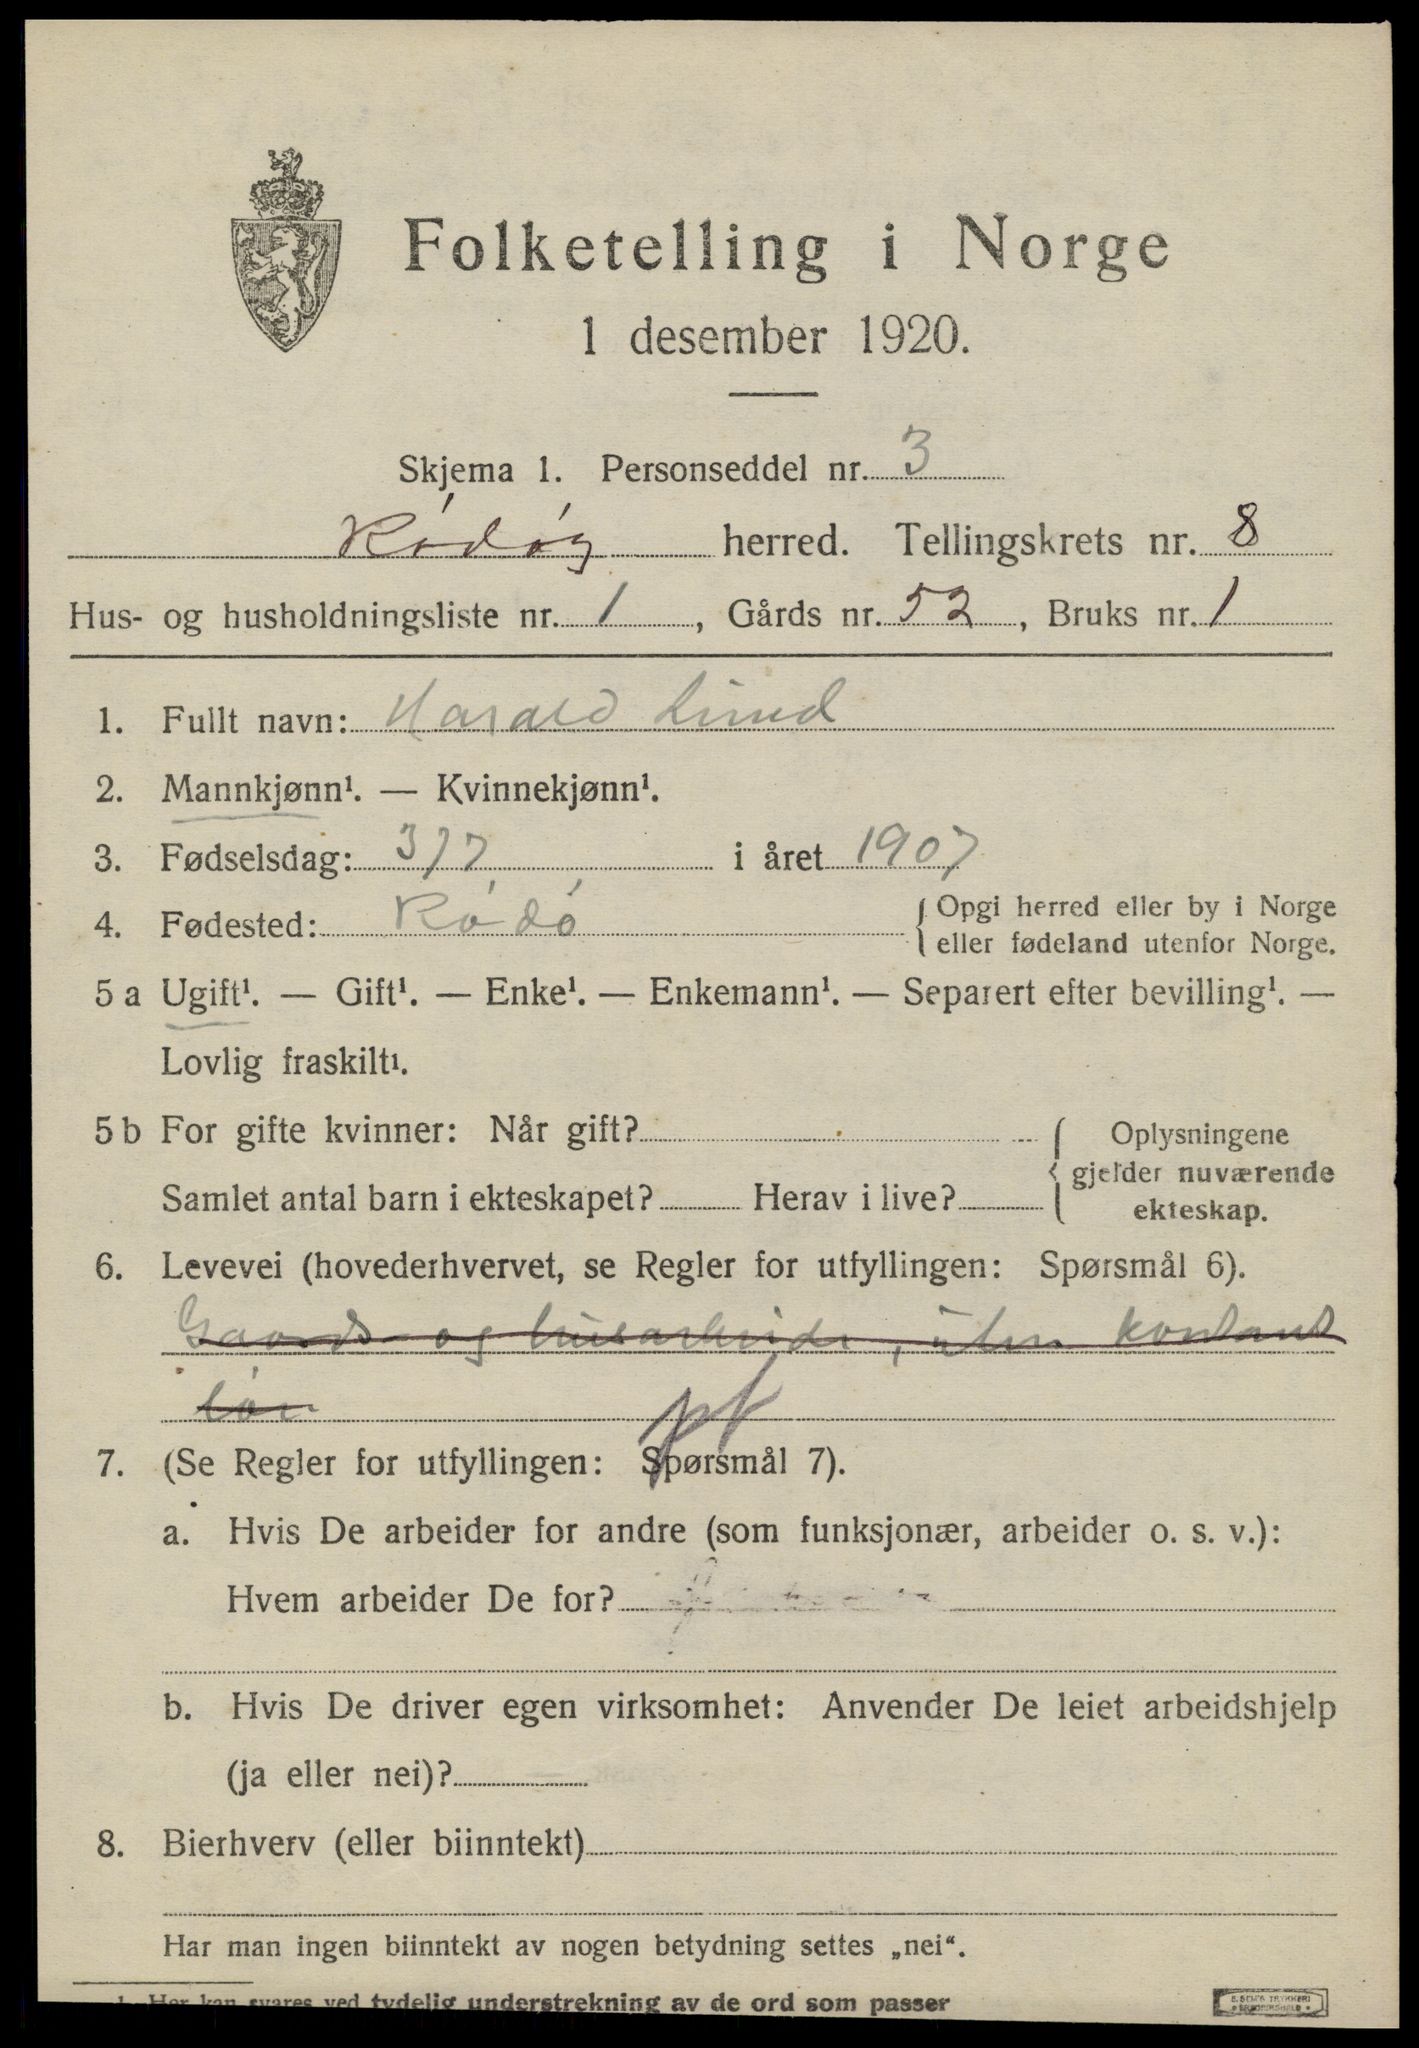 Folketelling i Norge
1 desember 1920.
Skjema 1. Personseddel nr. 3
Rødøy herred. Tellingskrets nr. 8
Hus- og husholdningsliste nr. 1, Gårds nr. 52, Bruks nr. 1
1. Fullt navn: Harald Lund
2. Mannkjønn¹. — Kvinnekjønn¹.
3. Fødselsdag: 3/7 i året 1907
4. Fødested: Rødø { Opgi herred eller by i Norge
eller fødeland utenfor Norge.
5 a Ugift¹. — Gift¹. — Enke¹. — Enkemann¹. — Separert efter bevilling¹. —
Lovlig fraskilt¹.
5 b For gifte kvinner: Når gift? { Oplysningene
gjelder nuværende
Samlet antal barn i ekteskapet? Herav i live?
ekteskap.
6. Levevei (hovederhvervet, se Regler for utfyllingen: Spørsmål 6).
Gaards- og husarbeide, uten kontant
løn
pf
7. (Se Regler for utfyllingen: Spørsmål 7).
a. Hvis De arbeider for andre (som funksjonær, arbeider o. s. v.):
Hvem arbeider De for?
b. Hvis De driver egen virksomhet: Anvender De leiet arbeidshjelp
(ja eller nei)?
8. Bierhverv (eller biinntekt)
Har man ingen biinntekt av nogen betydning settes „nei“.
1 Her kan svares ved tydelig understrekning av de ord som passer